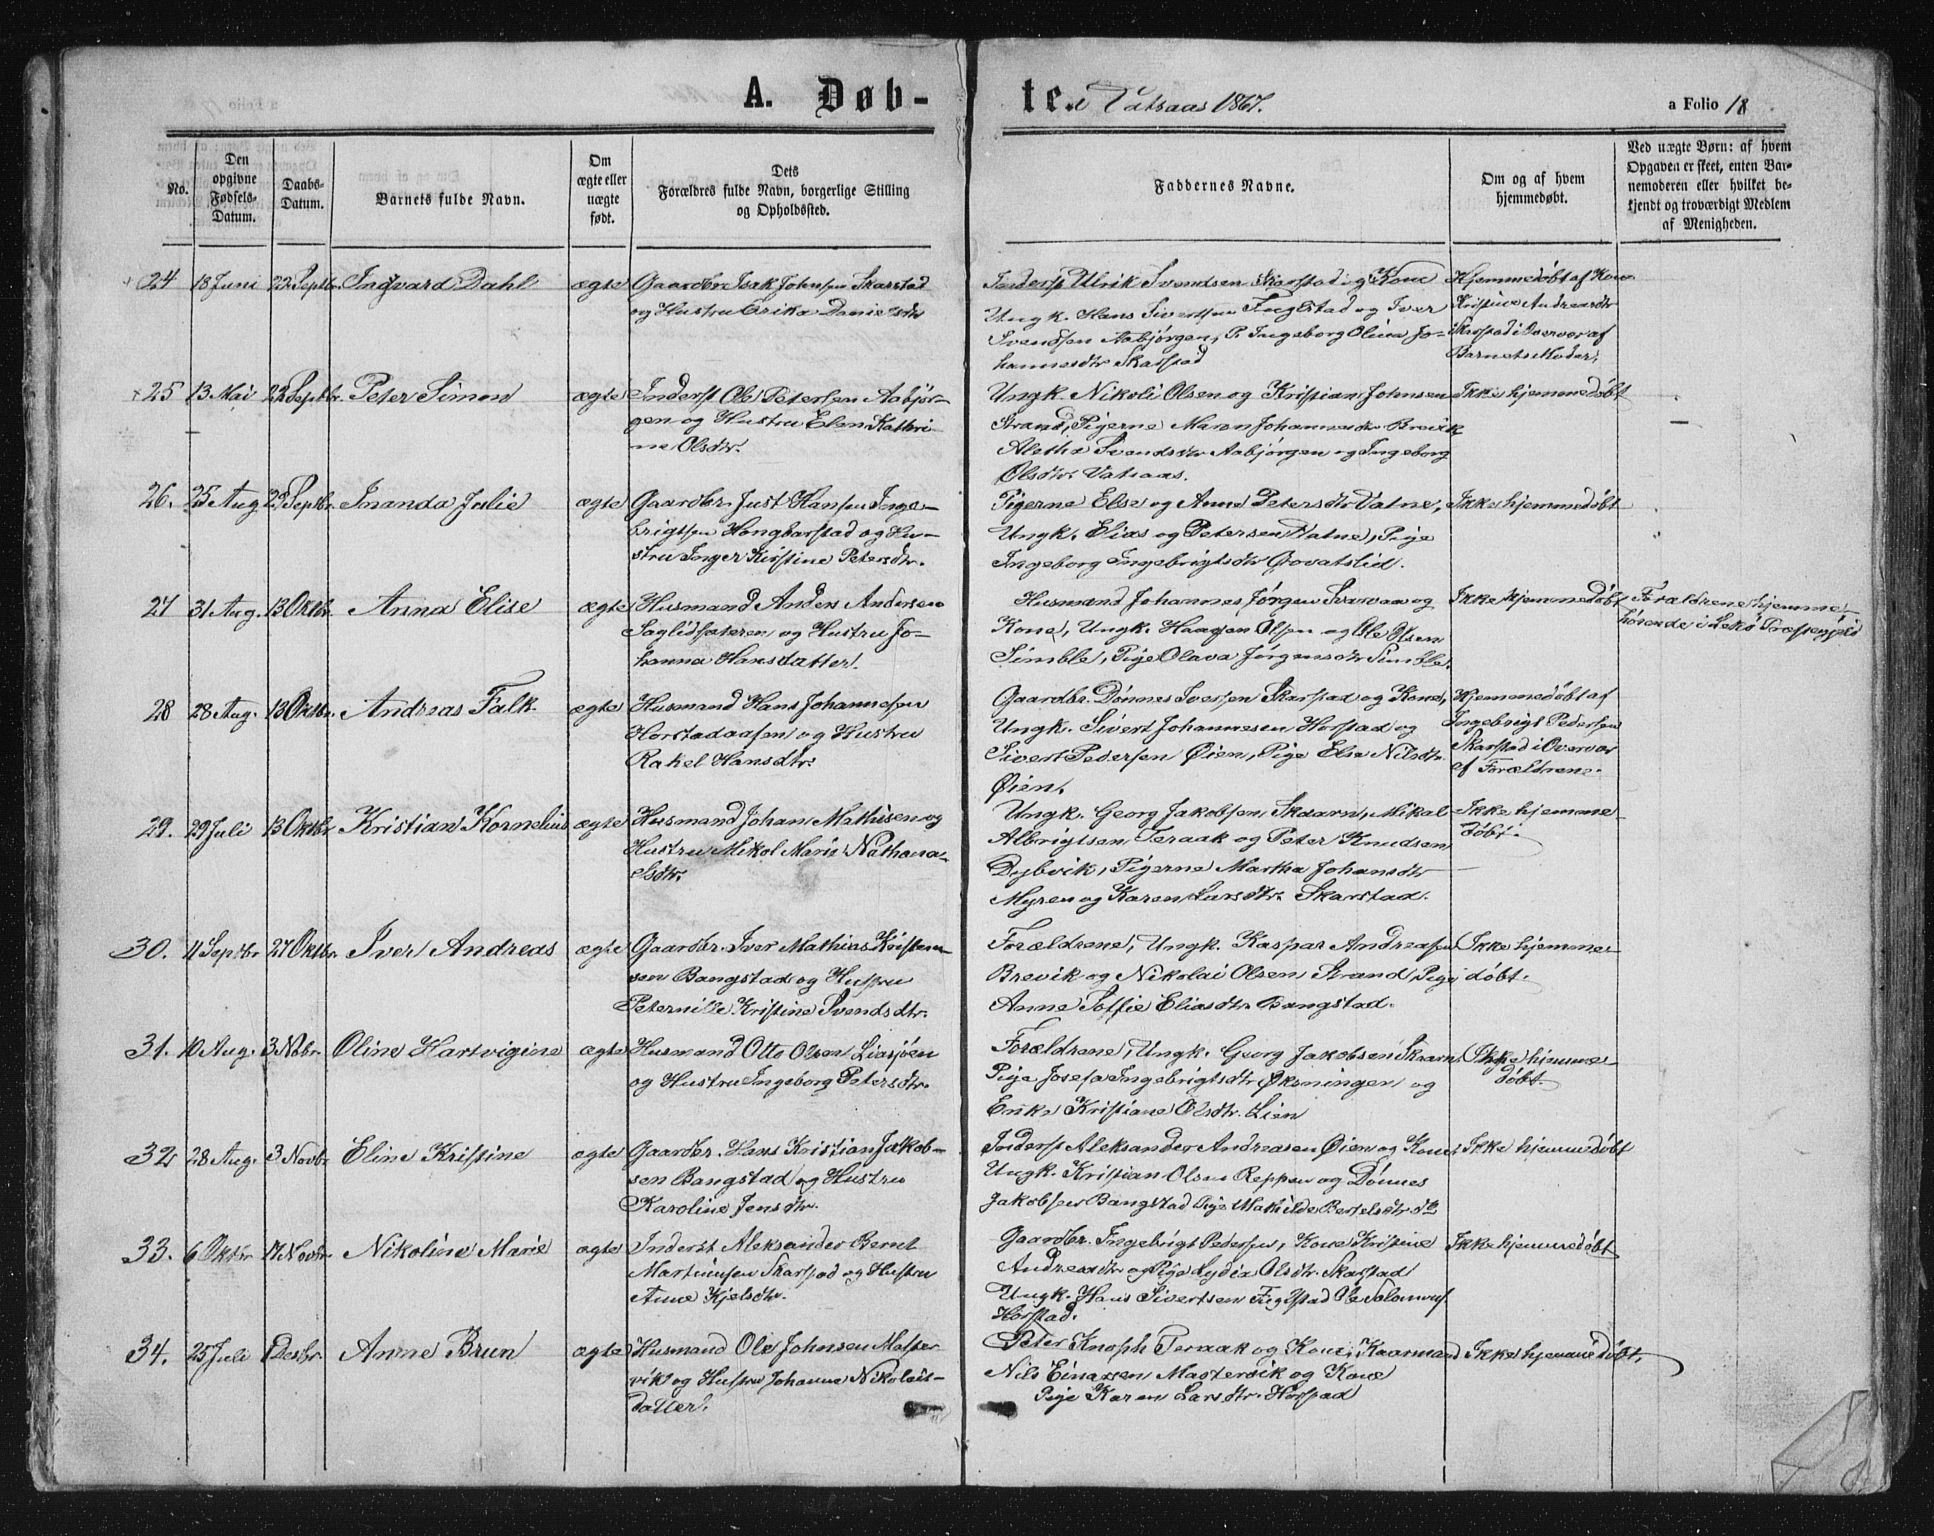 A. Døb-te. i Vatsaas 1867.
a Folio 18
No.
Den opgivne Fødsels-Datum.
Daabs-Datum.
Barnets fulde Navn.
Om ægte eller uægte født.
Dets Forældres fulde Navn, borgerlige Stilling og Opholdssted.
Faddernes Navne.
Om og af hvem hjemmedøbt.
Ved uægte Børn: af hvem Opgaven er skeet, enten Barnemoderen eller hvilket bekjendt og troværdigt Medlem af Menigheden.
24 18 Juni 22 Septbr. Ingvard Dahl ægte Gaardbr. Isak Johnsen Skarstad
og Hustru Erika Danielsdtr
Inderst Ulrik Svendsen Skarstad og Kone
Ungk. Hans Sivertsen Fuglstad og Iver
Svendsen Aabjørgen, P. Ingeborg Olina Jo-
hannesdtr Skarstad
Hjemmedøbt af Kone
Kristine Andreasdtr
Skarstad i Overvær af
Barnets Moder.
25 13 Mai 22 Septbr. Peter Simon ægte Inderst Ole Petersen Aabjør-
gen og Hustru Elen Kathri-
ne Olsdtr.
Ungk. Nikoli Olsen og Kristian Johnsen
Strand, Pigerne Maren Johannesdtr Brevik
Aletha Svendsdtr Aabjørgen og Ingeborg
Olsdtr. Vatsaas.
Ikke hjemmedøbt
26. 25 Aug. 29 Septbr. Inanda Julie ægte Gaardbr. Just Hansen Inge-
brigtsen Hongbarstad og Hu-
stru Inger Kirstine Petersdtr.
Pigerne Else og Anne Petersdtr Vatne,
Ungk. Elias og Petersen Vatne, Pige
Ingeborg Ingebrigtsdtr Govatslid.
Ikke hjemmedøbt
27 31 Aug. 13 Oktbr. Anna Elise ægte Husmand Anders Andersen
Saglidsæteren og Hustru Jo-
hanna Hansdatter.
Husmand Johannes Jørgen Svarvaa og
Kone, Ungk. Haagen Olsen og Ole Olsen
Simble, Pige Olava Jørgensdtr Simble.
Ikke hjemmedøbt
Forældrene hjemme-
hørende i Lekø Præstegjeld
28 28 Aug. 13 Oktbr. Andreas Falk ægte Husmand Hans Johannesen
Horstadaasen og Hustru
Rakel Hansdtr.
Gaardbr. Dønnes Iversen Skarstad og Kone,
Ungk. Sivert Johannesen Horstad og
Sivert Pedersen Øien, Pige Else Nilsdtr.
Øien.
Hjemmedøbt af
Ingebrigt Pedersen
Skarstad i Overvær
af Forældrene.
29. 29 Juli 13 Oktbr. Kristian Kornelius ægte Husmand Johan Mathisen og
Hustru Mikol Marie Nathana-
elsdtr.
Ungk. Georg Jakobsen Skaarn, Mikal
Albrigtsen Teraak og Peter Knudsen
Dybvik, Pigerne Martha Johansdtr
Myren og Karen Larsdtr. Skarstad.
Ikke hjemme-
døbt.
30. 11 Septbr 27 Oktbr. Iver Andreas ægte Gaardbr. Iver Mathias Kristian-
sen Bangstad og Hustru
Peternille Kristine Svendsdtr.
Forældrene, Ungk. Kaspar Andreasen
Brevik og Nikolai Olsen Strand, Pige
Anne Soffie Eliasdtr Bangstad.
Ikke hjemme-
døbt.
31. 10 Aug. 3 Nobr. Oline Hartvigine ægte Husmand Otto Olsen Liasjøen
og Hustru Ingeborg Petersdtr.
Forældrene, Ungk. Georg Jakobsen Skaarn,
Pige Josefa Ingebrigtsdtr Økoningen og
Erike Kristiane Olsdtr. Lien
Ikke hjemme-
døbt.
32 28 Aug. 3 Novbr Eline Kristine ægte Gaardbr. Hans Kristian Jakob-
sen Bangstad og Hustru
Karoline Jensdtr.
Inderst Aleksander Andreasen Øien og Kone,
Ungk. Kristian Olsen Reppen og Dønnes
Jakobsen Bangstad Pige Mathilde Bertelsdtr do
Ikke hjemmedøbt
33. 6 Oktbr 17 Novbr Nikoline Marie ægte Inderst Aleksander Bernt
Martinusen Skarstad og Hustru
Anne Kjelsdtr.
Gaardbr. Ingebrigt Pedersen, Kone Kristine
Andreasdtr og Pige Lydia Olsdtr. Skarstad
Ungk. Hans Sivertsen Fuglstad Ole Salomons.
Horstad.
Ikke hjemmedøbt
34. 25 Juli 1 Desbr. Anne Brun ægte Husmand Ole Johnsen Master-
vik og Hustru Johanna Nikolais-
datter.
Peter Knoph Teraak og Kone, Kaarmand
Nils Einarsen Mastervik og Kone
Pige Karen Larsdtr. Horstad
Ikke hjemmedøbt,